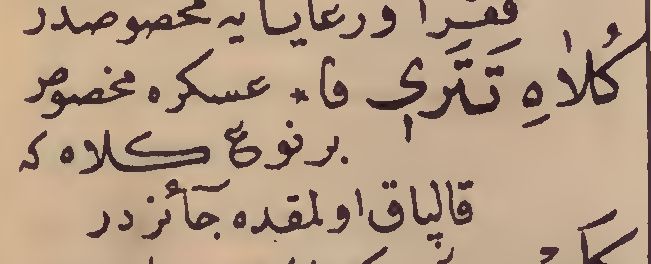 فقرا و رعایایه مخصوصدر
کُلاٰهِ تَتَرِی فا * عسکره مخصوص
بر نوع کلاه که
قالپاق اولمقده جائزدر